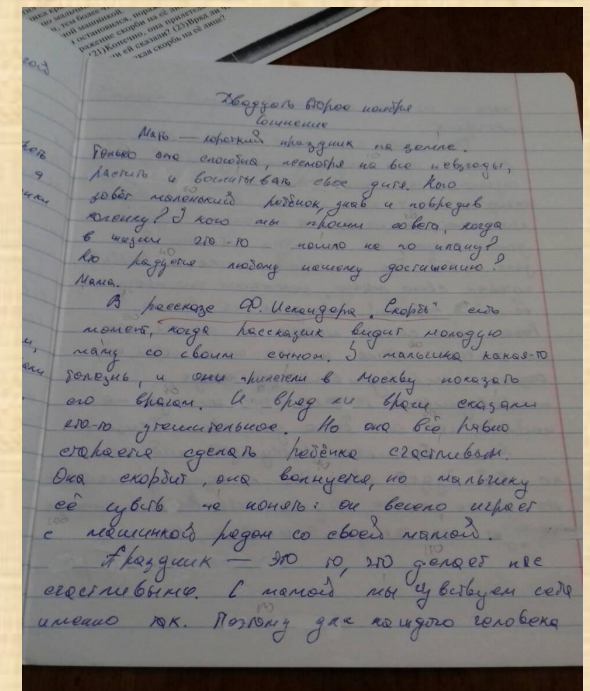 но мальчи
, тем более
й машинкой.
я остановился, пора
ражение скорби на её
(21)Конечно, она прилетела
ни ей сказали? (23)Вряд ли
икая скорбь на её лице?
Двадцать второе ноября
Сочинение
Мать — короткий праздник на земле.
Только она способна, несмотря на все невзгоды,
растить и воспитывать своё дитя. Кого
зовёт маленький ребёнок, упав и повредив
коленку? У кого мы просим совета, когда
в жизни что-то пошло не по плану?
Кто радуется любому нашему достижению?
Мама.
В рассказе Ф. Искандера „Скорбь" есть
момент, когда рассказчик видит молодую
маму со своим сыном. У мальчика какая-то
болезнь, и они прилетели в Москву показать
его врачам. И вряд ли врачи сказали
что-то утешительное. Но она всё равно
старается сделать ребёнка счастливым.
Она скорбит, она волнуется, но мальчику
её чувств не понять: он весело играет
с машинкой рядом со своей мамой.
Праздник — это то, что делает нас
счастливыми. С мамой мы чувствуем себя
именно так. Поэтому для каждого человека